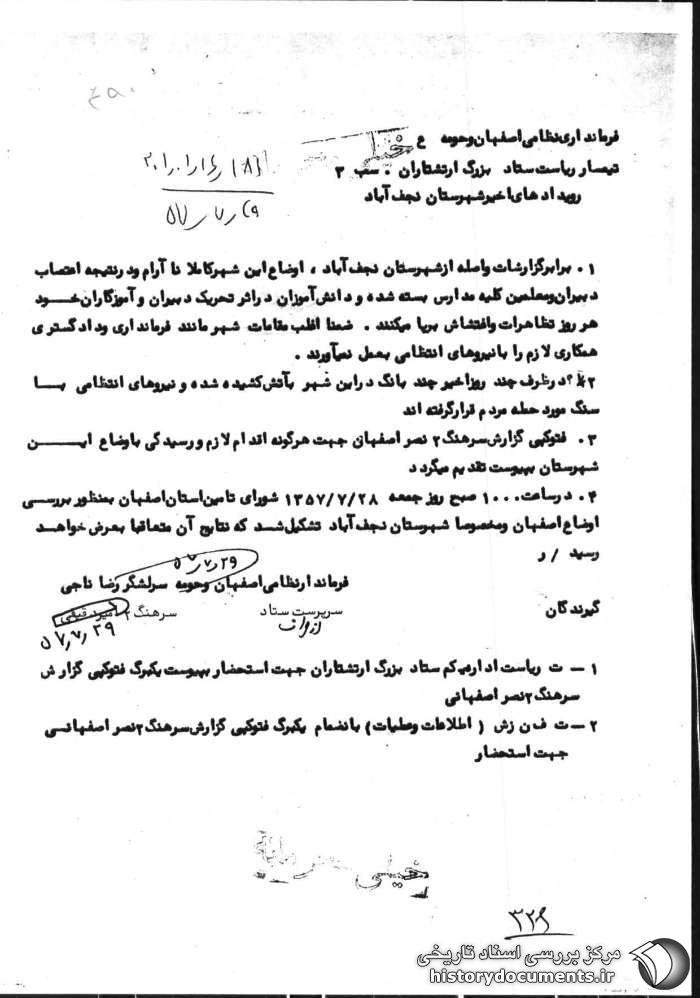 فرمانداری نظامی اصفهان و حومه ع
خیلی
تیمسار ریاست ستاد بزرگ ارتشتاران . سب ۳
رویدادهای اخیر شهرستان نجف آباد
۱. برابر گزارشات واصله از شهرستان نجف آباد ، اوضاع این شهر کاملا نا آرام و در نتیجه اعتصاب
دبیران و معلمین کلیه مدارس بسته شده و دانش آموزان در اثر تحریک دبیران و آموزگاران خود
هر روز تظاهرات و اغتشاش برپا میکنند . ضمنا اغلب مقامات شهر مانند فرمانداری و دادگستری
همکاری لازم را با نیروهای انتظامی بعمل نمیآورند .
۲. در ظرف چند روز اخیر چند بانک در این شهر بآتش کشیده شده و نیروهای انتظامی با
سنگ مورد حمله مردم قرار گرفته اند
۳. فتوکپی گزارش سرهنگ۲ نصر اصفهانی جهت هرگونه اقدام لازم و رسیدگی باوضاع این
شهرستان بپیوست تقدیم میگردد
۴. در ساعت ۱۰۰۰ صبح روز جمعه ۱۳۵۷/۷/۲۸ شورای تامین استان اصفهان بمنظور بررسی
اوضاع اصفهان و مخصوصا شهرستان نجف آباد تشکیل شد که نتایج آن متعاقبا بعرض خواهد
رسید / ر
فرماندار نظامی اصفهان و حومه سرلشگر رضا ناجی
گیرندگان
سرپرست ستاد
سرهنگ۲
۵۷٫۷٫۲۹
۱ – ت ریاست اداره یکم ستاد بزرگ ارتشتاران جهت استحضار بپیوست یکبرگ فتوکپی گزارش
سرهنگ۲ نصر اصفهانی
۲ – ت ف ن زش ( اطلاعات و عملیات ) بانضمام یکبرگ فتوکپی گزارش سرهنگ۲ نصر اصفهانی
جهت استحضار
خیلی
۳۲۹
مرکز بررسی اسناد تاریخی
historydocuments.ir